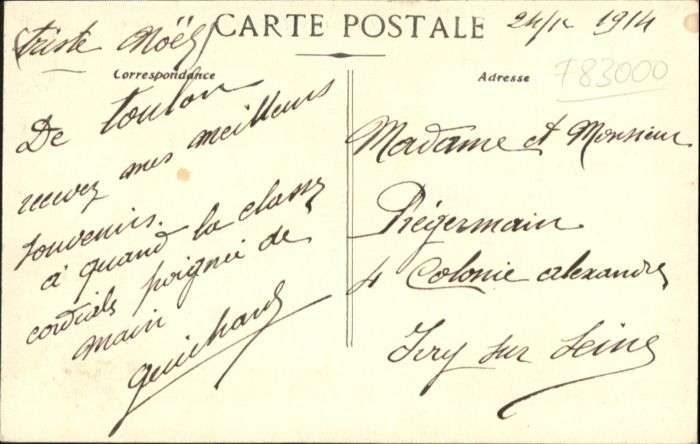 (triste Noël) CARTE POSTALE 24/12 1914
Correspondance
Adresse
783000
De Toulon
recevez mes meilleurs
souvenirs.
à quand la classe
cordiale poignée de
main
Guichard
Madame et Monsieur
Régermain
4 Colonie alexandre
Ivry sur Seine